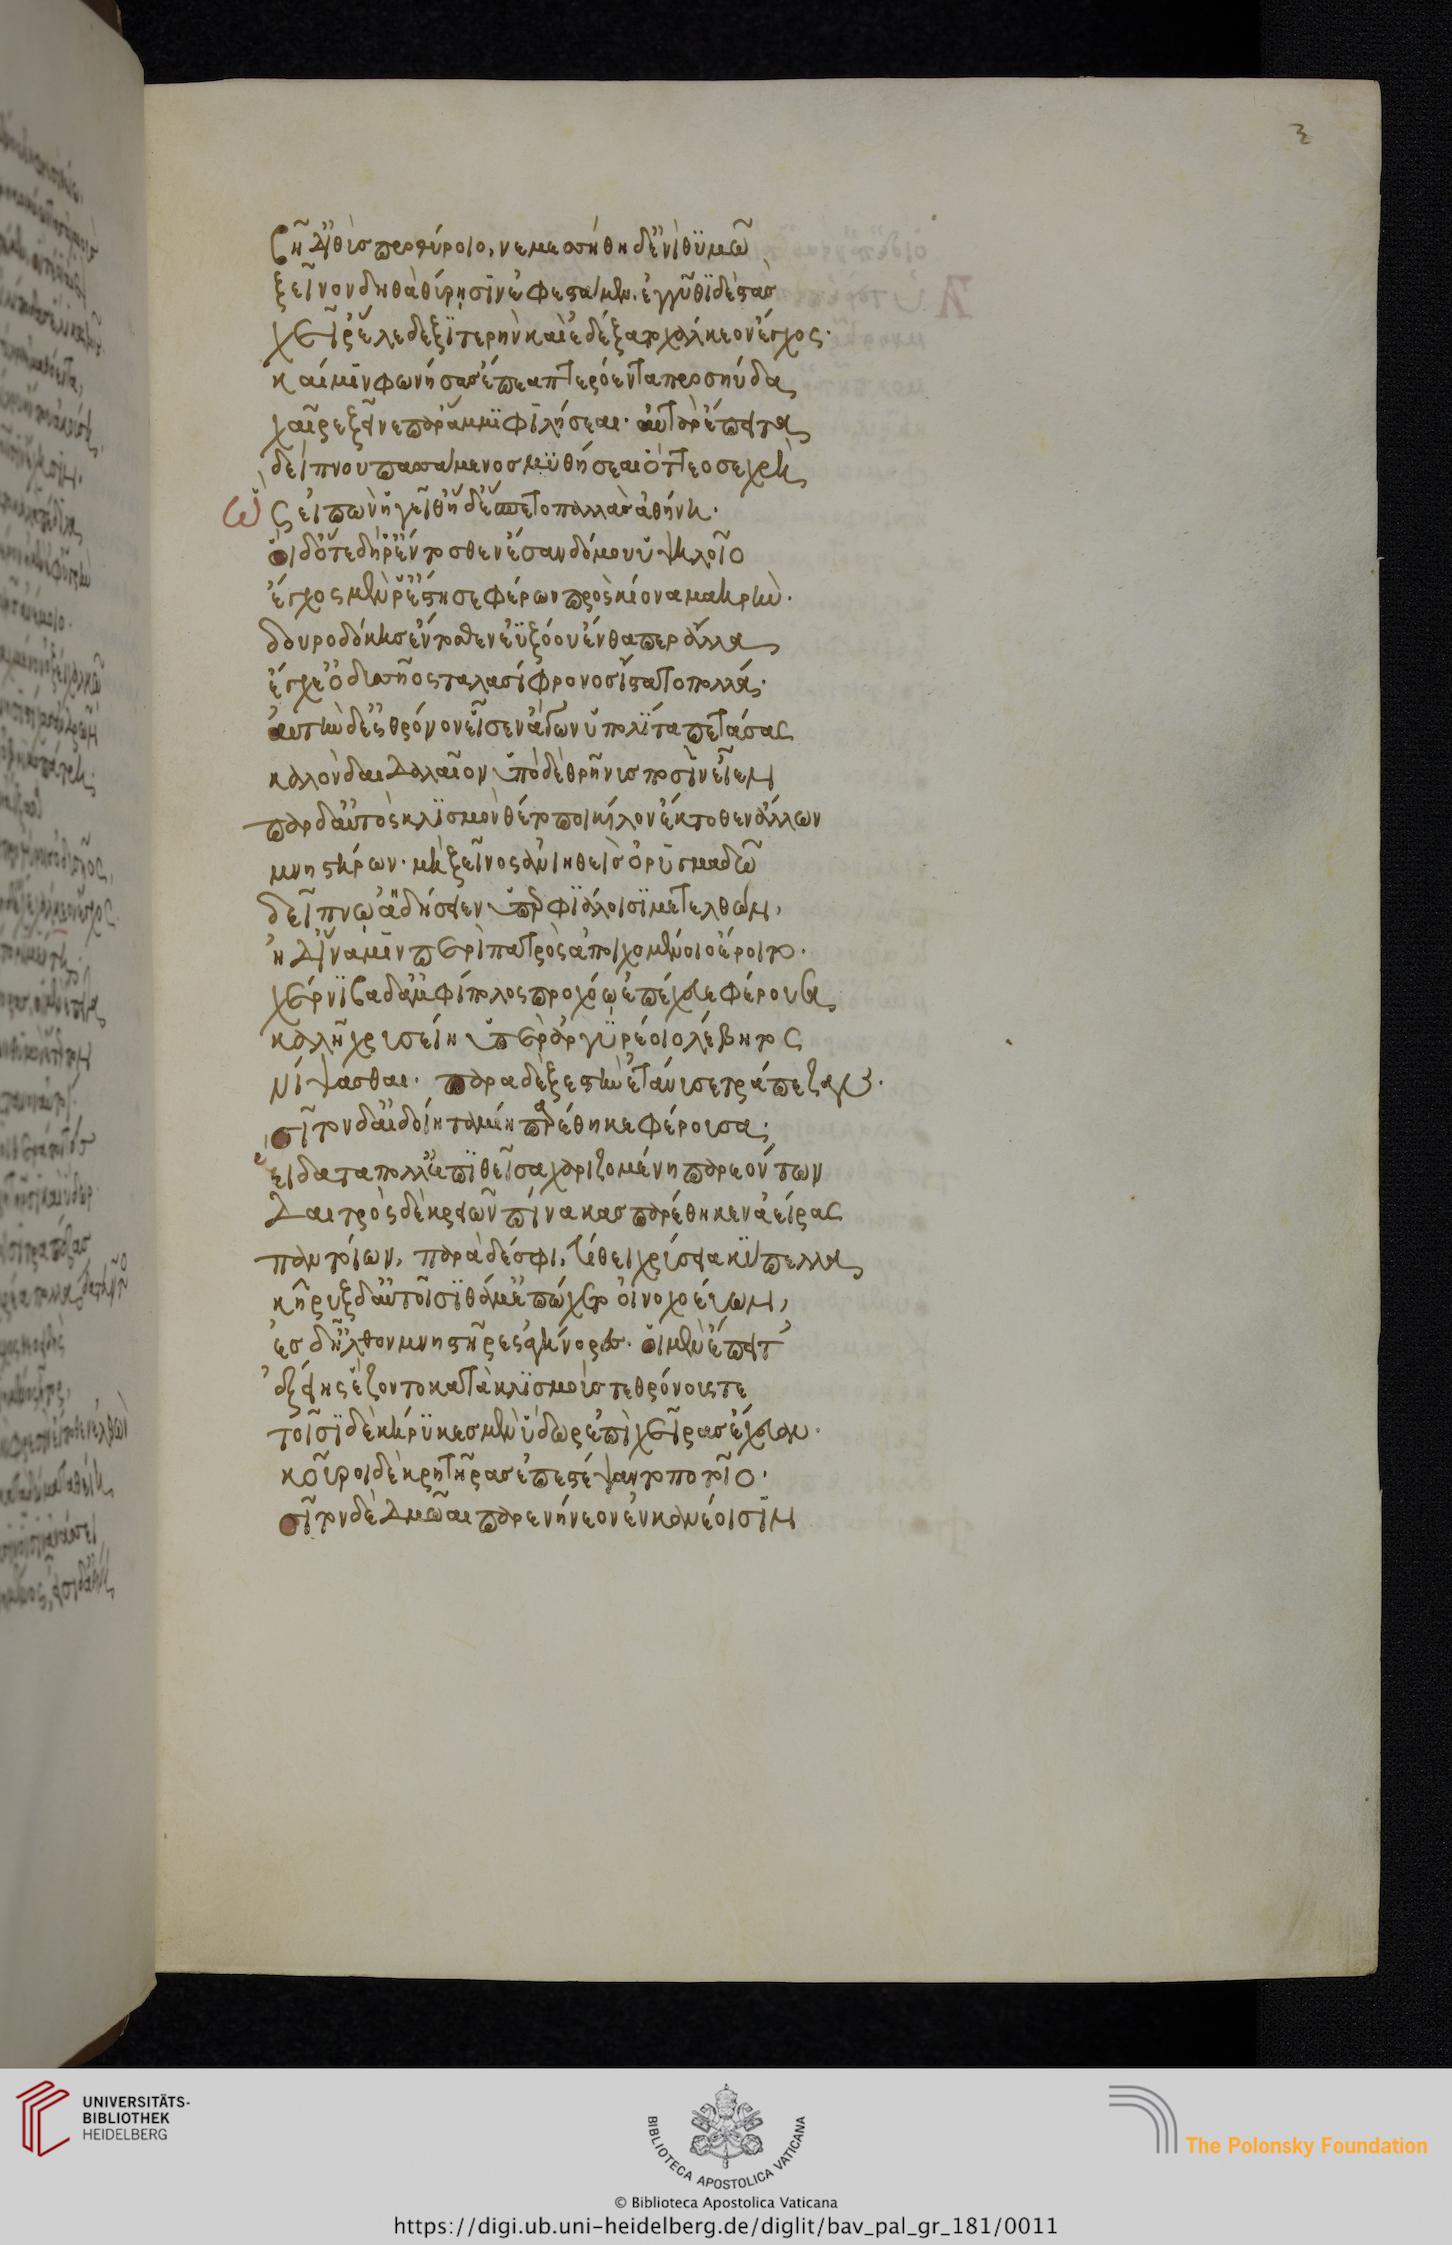 3
βῆ δ' ἰθὺς προθύροιο, νεμεσσήθη δ' ἐνὶ θυμῶ
ξεῖνον δηθὰ θύρησιν ἐφεστάμεν. ἐγγύθι δὲ στὰς
χεῖρ' ἕλε δεξιτερὴν καὶ ἐδέξατο χάλκεον ἔγχος·
καί μιν φωνήσας ἔπεα πτερόεντα προσηύδα
χαῖρε ξεῖνε παρ' ἄμμι φιλήσεαι· αὐτὰρ ἔπειτα
δείπνου πασσάμενος μυθήσεαι ὅττεό σε χρὴ
ὣς εἰπὼν ἡγεῖθ' ἡ δ' ἕσπετο παλλὰς ἀθήνη·
οἱ δ' ὅτε δή ῥ' ἔντοσθεν ἔσαν δόμου ὑψηλοῖο
ἔγχος μέν ῥ' ἔστησε φέρων πρὸς κίονα μακρὴν·
δουροδόκης ἔντοσθεν ἐϋξόου ἔνθα περ ἄλλα
ἔγχε' ὀδυσσῆος ταλασίφρονος ἵστατο πολλά·
αὐτὴν δ' ἐς θρόνον εἷσεν ἄγων ὑπὸ λῖτα πετάσας
καλὸν δαιδάλαιον ὑπὸ δὲ θρῆνυς ποσὶν ἦεν
πὰρ δ' αὐτὸς κλισμὸν θέτο ποικίλον ἔκτοθεν ἄλλων
μνηστήρων· μὴ ξεῖνος ἀνιηθεὶς ὀρυμαδῶ
δείπνω ἀδήσειεν ὑπερφιάλοισι μετελθών,
ἠδ' ἵνα μιν περὶ πατρὸς ἀποιχομένοιο ἔροιτο·
χέρνιβα δ' ἀμφίπολος προχόω ἐπέχευε φέρουσα
καλῆ χρυσείη ὑπὲρ ἀργυρέοιο λέβητος
νίψασθαι· παρὰ δὲ ξεστὴν ἐτάνυσε τράπεζαν·
σῖτον δ' αἰδοίη ταμίη παρέθηκε φέρουσα·
εἴδατα πόλλ' ἐπιθεῖσα χαριζομένη παρεόντων
δαιτρὸς δὲ κρειῶν πίνακας παρέθηκεν ἀείρας
παντοίων, παρὰ δέ σφι, τίθει χρύσεια κύπελλα
κῆρυξ δ' αὐτοῖσι θάμ' ἐπώχετο οἰνοχοεύων,
ἐς δ' ἦλθον μνηστῆρες ἀγήνορες· οἱ μὲν ἔπειτ'
ἑξείης ἕζοντο κατὰ κλισμούς τε θρόνους τε
τοῖσι δὲ κήρυκες μὲν ὕδωρ ἐπὶ χεῖρας ἔχευαν·
κοῦροι δὲ κρητῆρας ἐπεστέψαντο ποτοῖο·
σῖτον δὲ δμωαὶ παρενήνεον ἐν κανέοισιν
UNIVERSITÄTS-
BIBLIOTHEK
HEIDELBERG
BIBLIOTECA APOSTOLICA VATICANA
The Polonsky Foundation
© Biblioteca Apostolica Vaticana
https://digi.ub.uni-heidelberg.de/diglit/bav_pal_gr_181/0011